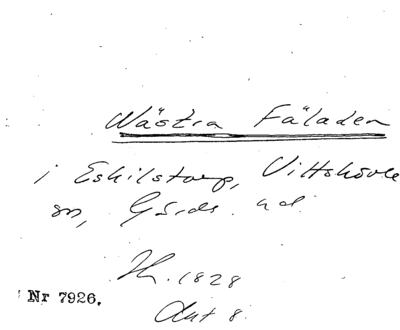 Wästra Fäladen
i Eskilstorp, Vittskövle
sn, Gärds hd.
Th. 1828
Nr 7926.
Akt 8.